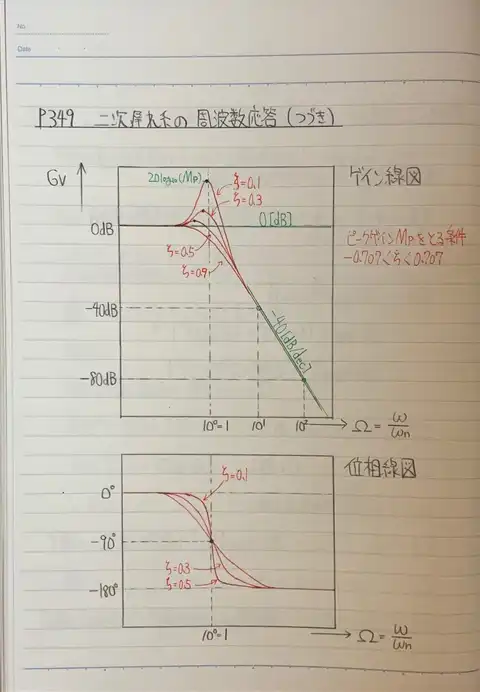 No.
Date
P349 二次遅れ系の周波数応答(つづき)
Gv
20log₁₀(Mp)
ζ=0.1
ζ=0.3
ゲイン線図
0dB
0[dB]
ピークゲインMpをとる条件
-0.707<ζ<0.707
ζ=0.5
ζ=0.9
-40dB
-40[dB/dec]
-80dB
10⁰=1
10¹
10²
Ω = ω/ωn
位相線図
ζ=0.1
0°
-90°
ζ=0.3
ζ=0.5
-180°
10⁰=1
Ω = ω/ωn